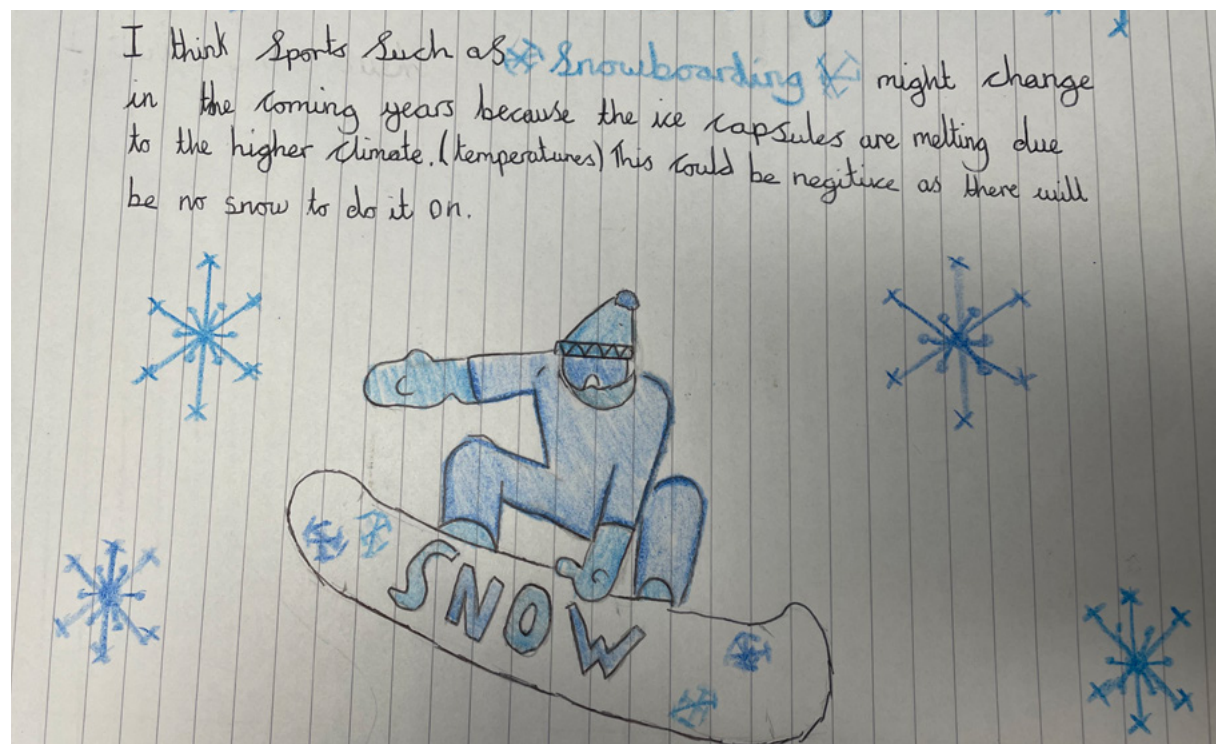 I think sports such as Snowboarding might change
in the coming years because the ice capsules are melting due
to the higher climate. (temperatures) This could be negitive as there will
be no snow to do it on.
SNOW